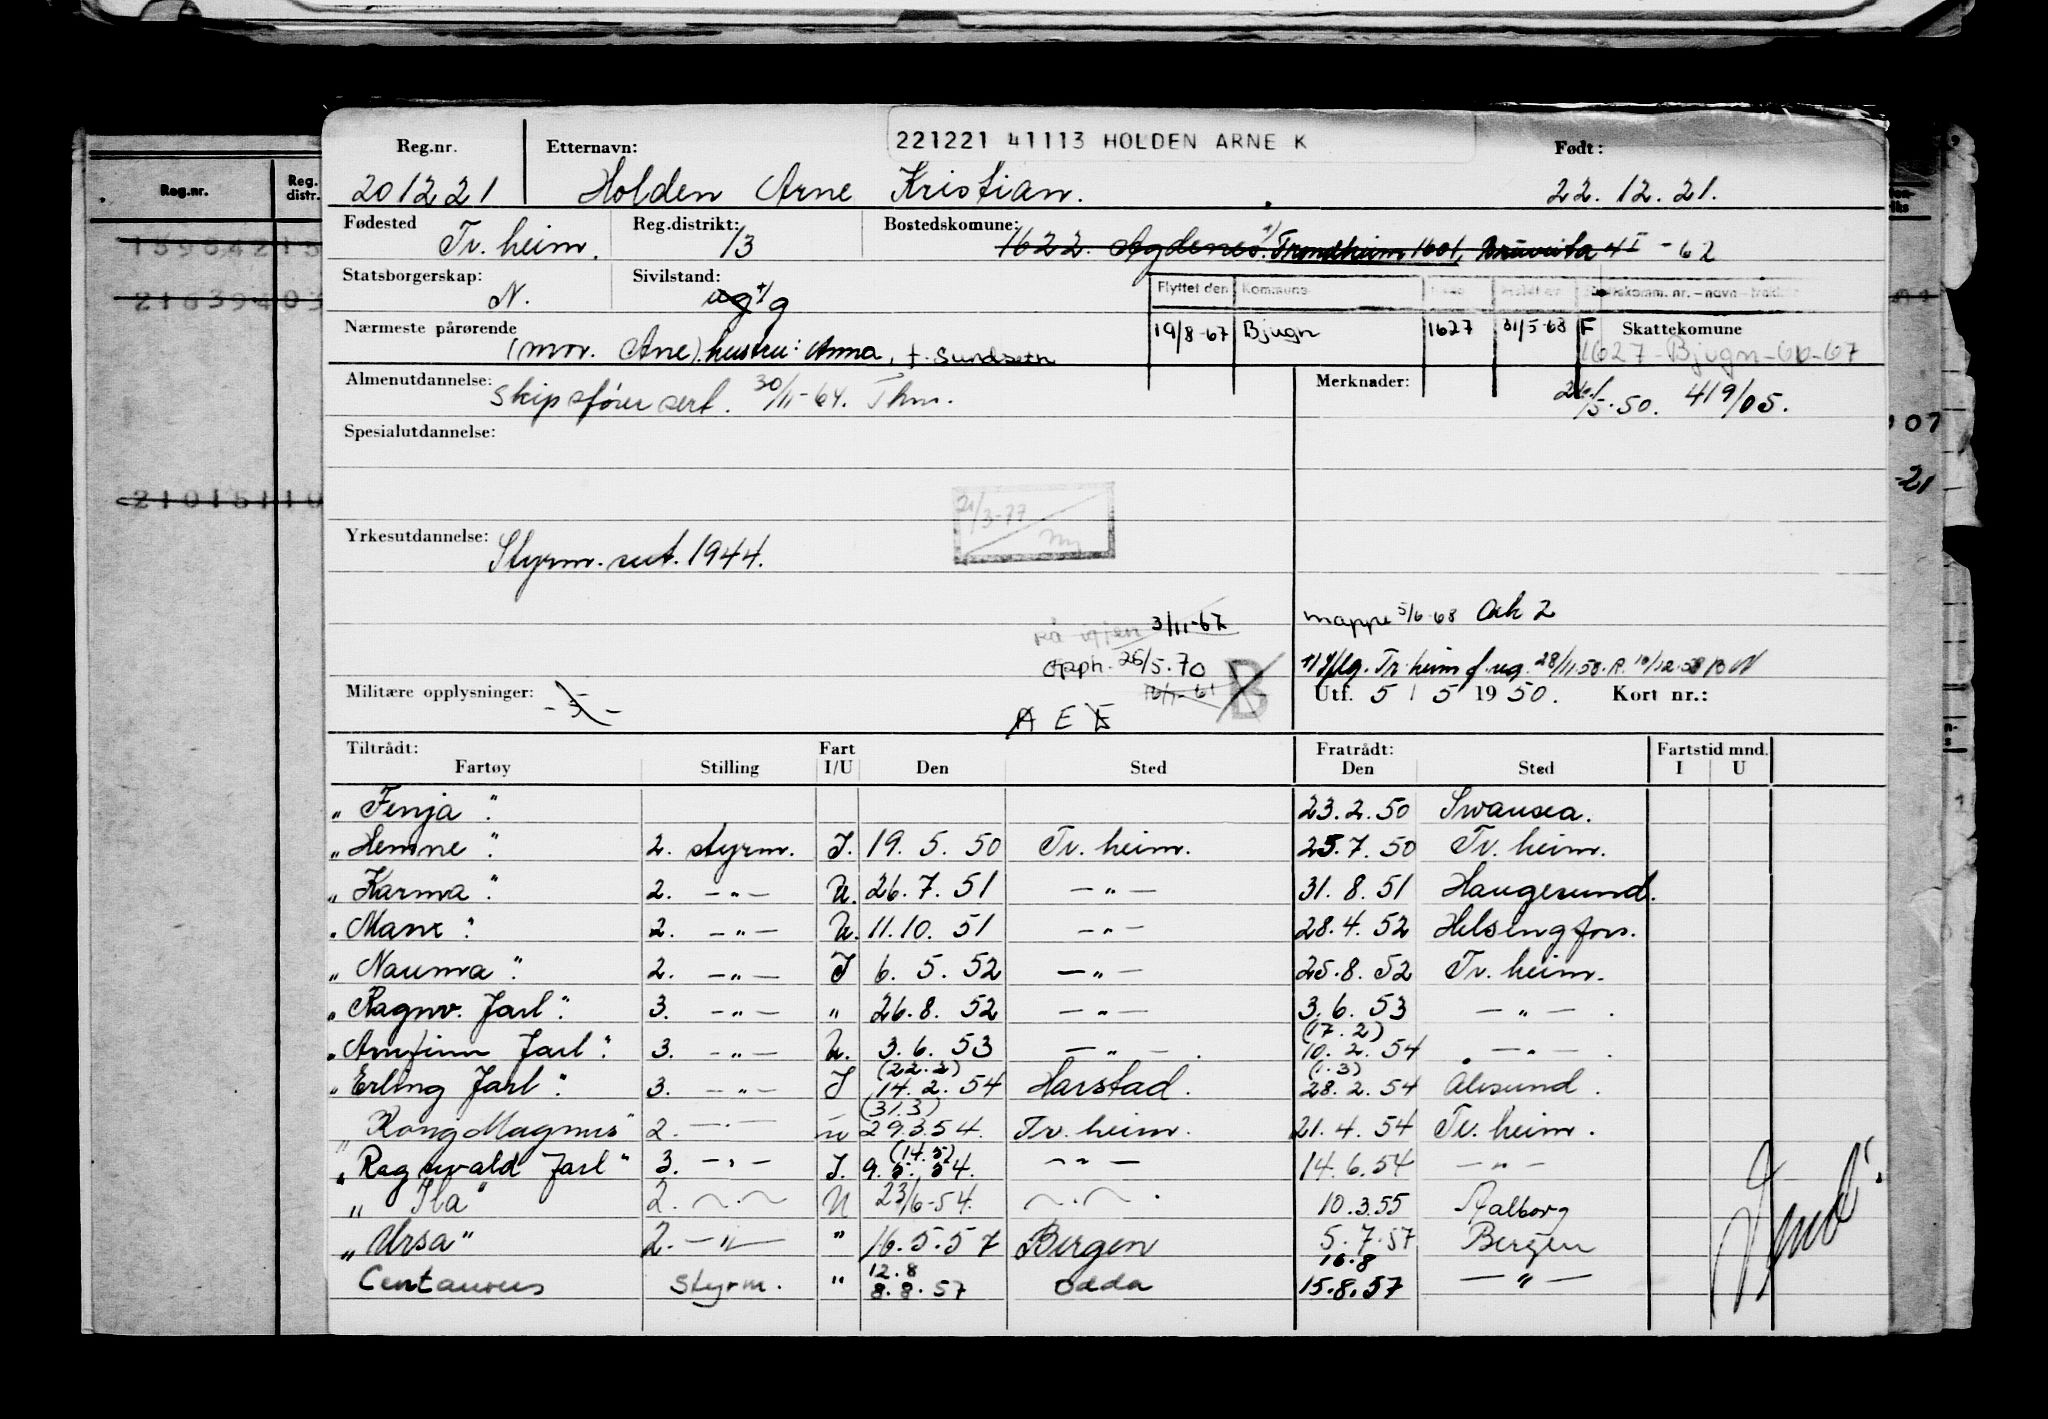 Reg.nr. Etternavn: 221221 41113 HOLDEN ARNE K Født:
201221 Holden Arne Kristian. 22.12.21.
Fødested Tr.heim. Reg.distrikt: 13 Bostedskomune: 1622. Agdenes. Trondheim 1601, 4 I - 62
Statsborgerskap: N. Sivilstand: ug g
Flyttet den Kommune
Nærmeste pårørende (mor. Ane). hustru: Anna, f. Sundseth
19/8-67 Bjugn 1627 31/5-68 F Skattekomune
1627-Bjugn-60-67
Almenutdannelse: Skipsfører sert. 30/11-64. Thm. Merknader: 5.50. 419/05.
Spesialutdannelse:
21/3-77
Yrkesutdannelse: Styrm. sert. 1944.
3/11-67 mappe 5/6-68 Ark 2
opph. 26/5.70 Tr.heim f. ug. 28/11.58. R. 10/12.58
Militære opplysninger: 16/1-61 B Utf. 5 / 5 1950. Kort nr.:
A E E
Tiltrådt: Fart Fratrådt: Fartstid mnd.
Fartøy Stilling I/U Den Sted Den Sted I U
"Fenja". 23.2.50 Swansea.
"Hemne". 2. styrm. I. 19.5.50 Tr.heim. 25.7.50 Tr.heim.
"Karma". 2. -"- U. 26.7.51 -"- 31.8.51 Haugesund.
"Manx". 2. -"- U. 11.10.51 -"- 28.4.52 Helsingfors.
"Nauma". 2. -"- I 6.5.52 -"- 25.8.52 Tr.heim.
"Ragnv. Jarl". 3. -"- " 26.8.52 -"- 3.6.53 -"-.
(17.2)
"Arnfinn Jarl". 3. -"- U. 3.6.53 -"-. 10.2.54 -"-.
(22.2) (1.3)
"Erling Jarl". 3. -"- I 14.2.54 Harstad. 28.2.54 Ålesund.
(31.3)
"Kong Magnus" 2. -"- U 29.3.54. Tr.heim. 21.4.54 Tr.heim.
(14.5)
"Ragnvald Jarl" 3. -"- I. 9.5.54. -"- 14.6.54 -"-
"Ila" 2. -"- U 23/6-54. -"-. 10.3.55 Aalborg
"Ursa" 2. -"- " 16.5.57 Bergen 5.7.57 Bergen
12.8 16.8
Centaurus Styrm. " 8.8.57 Odda 15.8.57 -"-
Reg.nr. Reg. distr.
159642 15
216394 03
210151 10
07
21